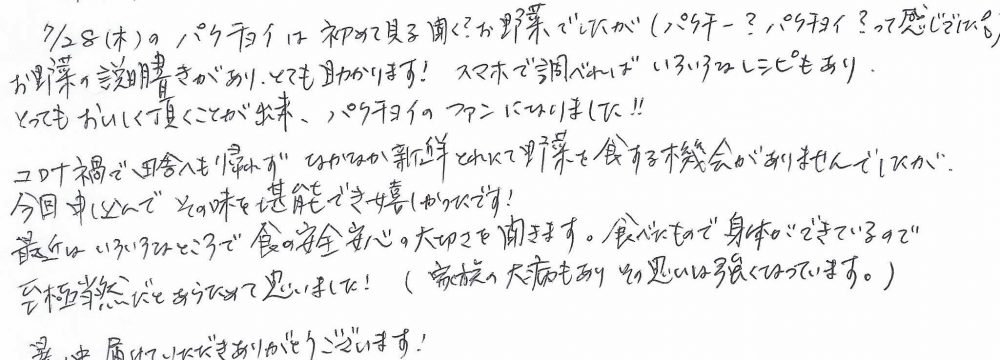 7/28(木)の パクチョイは 初めて見る聞く?お野菜でしたが(パクチー?パクチョイ?って感じでした。)
お野菜の説明書きがあり、とても助かります! スマホで調べれば いろいろなレシピもあり、
とってもおいしく頂くことが出来、パクチョイのファンになりました!!
コロナ禍で田舎へも帰れず なかなか新鮮とれたて野菜を食する機会がありませんでしたが、
今回申し込んで その味を堪能でき嬉しかったです!
最近は いろいろなところで 食の安全安心の大切さを聞きます。食べたもので身体ができているので
至極当然だとあらためて思いました! (家族の大病もあり その思いは強くなっています。)
暑い中 届けていただきありがとうございます!